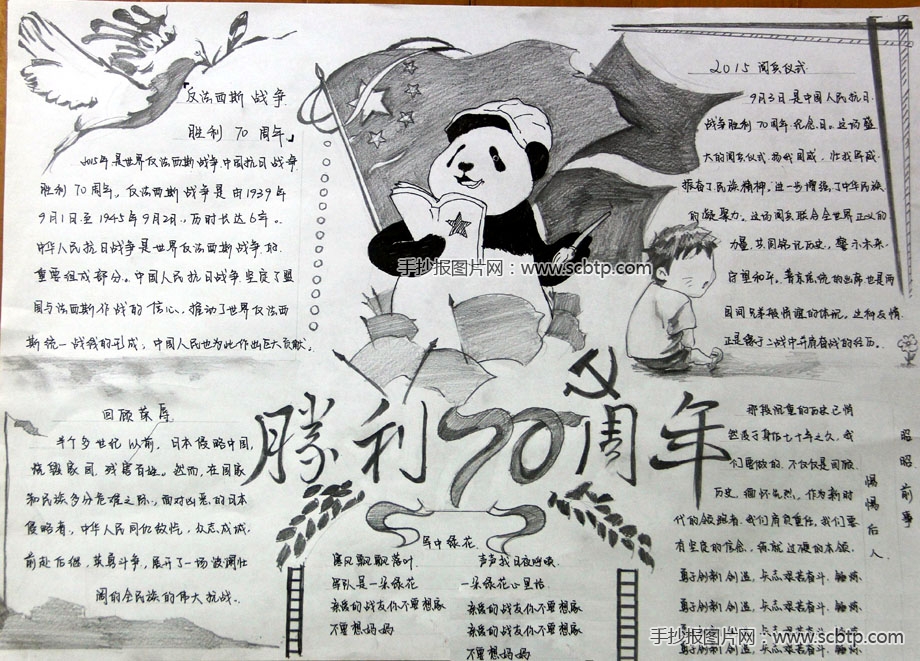 「反法西斯战争
胜利70周年」
2015年是世界反法西斯战争中国抗日战争
胜利70周年。反法西斯战争是由1939年
9月1日至1945年9月2日,历时长达6年。
中华人民抗日战争是世界反法西斯战争的
重要组成部分。中国人民抗日战争坚定了盟
国与法西斯作战的信心,推动了世界反法西
斯统一战线的形成,中国人民也为此作出巨大贡献。
2015阅兵仪式
9月3日是中国人民抗日
战争胜利70周年纪念日。这场盛
大的阅兵仪式,扬我国威,壮我军威,
振奋了民族精神,进一步增强了中华民族
的凝聚力。这场阅兵联合全世界正义的
力量,共同铭记历史,警示未来,
守望和平。普京总统的出席也是两
国间兄弟般情谊的体现。这种友情
正是缘于二战中并肩奋战的经历。
手抄报图片网:www.scbtp.com
勝利70周年
回顾荣辱
半个多世纪以前,日本侵略中国,
烧毁家园,残害百姓。然而,在国家
和民族多分危难之际,面对凶恶的日本
侵略者,中华人民同仇敌忾,众志成城,
前赴后继,英勇斗争,展开了一场波澜壮
阔的全民族的伟大抗战。
军中绿花
寒风飘飘落叶
军队是一朵绿花
亲爱的战友你不要想家
不要想妈妈
声声我日夜呼唤
一朵绿花心里话
亲爱的战友你不要想家
亲爱的战友你不要想家
不要想妈妈
那段沉重的历史已悄
然度于身后七十年之久,我
们要做的,不仅仅是回顾
历史,缅怀先烈。作为新时
代的领照者,我们肩负重任,我们要
有坚定的信念,练就过硬的本领,
勇于创新创造,矢志艰苦奋斗,锤炼
勇于创新创造,矢志艰苦奋斗,锤炼
勇于创新创造,矢志艰苦奋斗,锤炼
昭昭前事
惕惕后人
手抄报图片网:www.scbtp.com